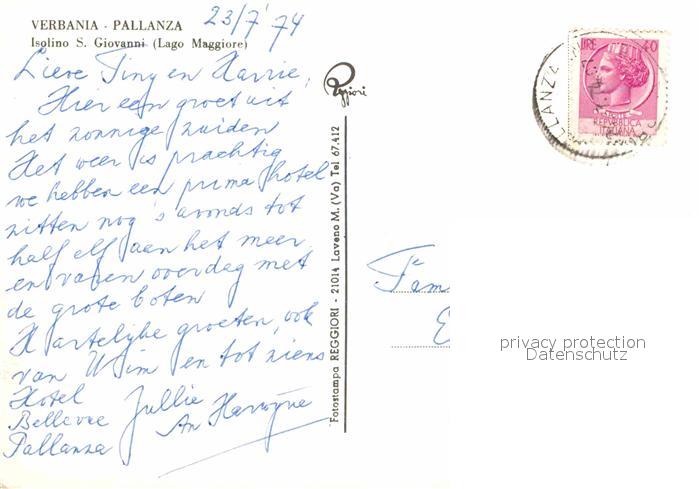 VERBANIA - PALLANZA
Isolino S. Giovanni (Lago Maggiore)
23/7 '74
Lieve Tiny en Harrie,
Hier een groet uit
het zonnige zuiden
Het weer is prachtig
we hebben een prima hotel
zitten nog 's avonds tot
half elf aan het meer
en varen overdag met
de grote boten
Hartelijke groeten, ook
van Wim en tot ziens
Hotel
Bellevue
Pallanza
Jullie
An
Reggiori
Fotostampa REGGIORI - 21014 Laveno M. (Va) Tel 67.412
LIRE 40
REPVBBLICA
ITALIANA
PALLANZA
Fam
privacy protection
Datenschutz